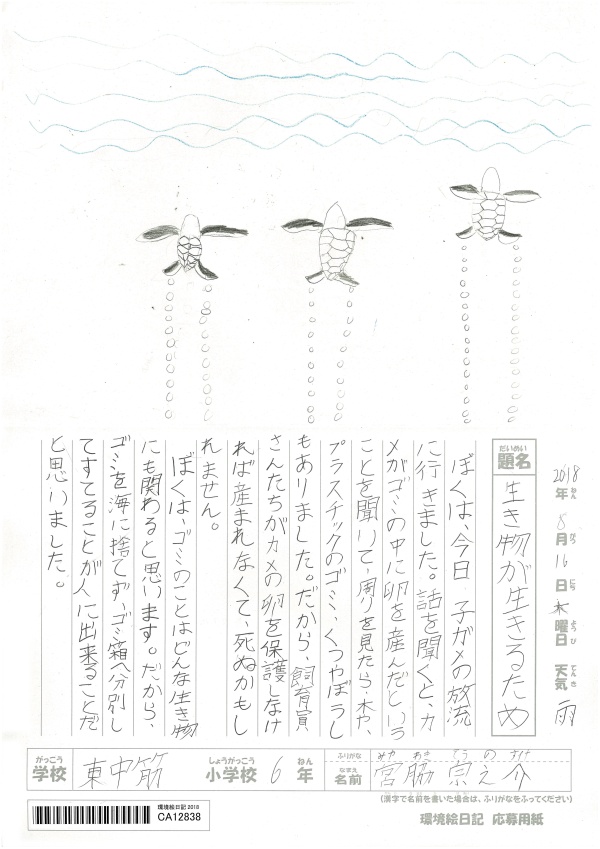 2018年ねん8月がつ16日にち木曜日ようび 天気てんき 雨
題名だいめい 生き物が生きるため
ぼくは、今日子ガメの放流
に行きました。話を聞くと、カ
メがゴミの中に卵を産んだという
ことを聞いて、周りを見たら、木や、
プラスチックのゴミ、くつやぼうし
もありました。だから、飼育員
さんたちがカメの卵を保護しなけ
れば産まれなくて、死ぬかもし
れません。
ぼくは、ゴミのことはどんな生き物
にも関わると思います。だから、
ゴミを海に捨てず、ゴミ箱へ分別し
てすてることが人に出来ることだ
と思いました。
がっこう しょうがっこう ねん ふりがな みやわき そうのすけ
学校 東中筋 小学校 6年 なまえ 名前 宮脇 宗之介
(漢字で名前を書いた場合は、ふりがなをふってください)
環境絵日記 2018
CA12838
環境絵日記 応募用紙